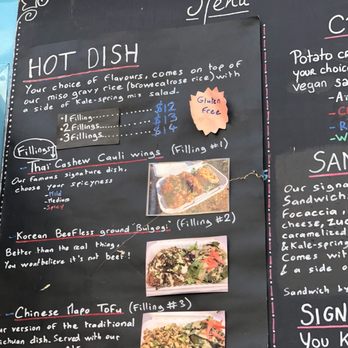 Menu
HOT DISH
Your choice of flavours, comes on top of
our miso gravy rice (brown calrose rice) with
a side of Kale-spring mix salad.
1 Filling......... $12
2 Fillings....... $13
3 Fillings....... $14
Gluten
Free
Fillings
- Thai Cashew Cauli wings (Filling #1)
Our famous signature dish,
choose your spicyness
- Mild
- Medium
- Spicy
- Korean Beefless ground "Bulgogi" (Filling #2)
Better than the real thing,
You won't believe it's not beef!
- Chinese Mapo ToFu (Filling #3)
our version of the traditional
dish. Served with our
Potato c
your choice
vegan sa
SAN
Our signa
Sandwich
Focaccia,
cheese, Zuc
caramelized
& Kale-spring
Comes with
& a side o
Sandwich by
SIGN
You K